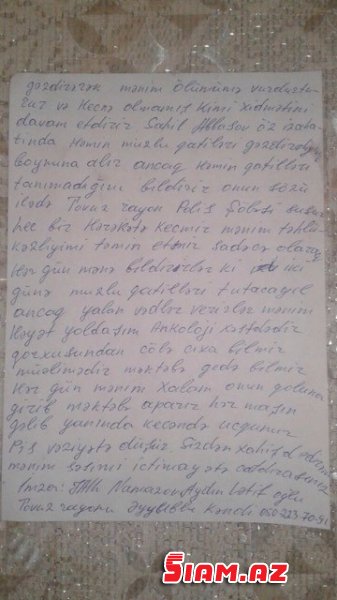 gəzdirərək mənim ölümümə vurdurtu-
rur və Hecnə olmamış kimi xidmətini
davam etdirir Sahil Abbasov öz izaha-
tında həmin muzlu qatilləri gəzdirdiyini
boynuna alır ancaq həmin qatilləri
tanımadığını bildirir onun sözü
ilədə Tovuz rayon Polis Şöbəsi susur
heç bir Hərəkətə keçmir mənim təhlü-
kəsliyimi təmin etmir sadəcə olaraq
Hər gün mənə bildirirlər ki iki
günə muzlu qatilləri tutacayıl
ancaq yalan vədlər verirlər mənim
Həyat yoldaşım Ankoloji xəstədir
qorxusundan çölə çıxa bilmir
müəlimədir məktəbə gedə bilmir
Hər gün mənim Xalam onun qoluna
girib məktəbə aparır hər maşın
gəlib yanında keçəndə uçunur
Pis vəziyətə düşür. Sizdən xahiş edirəm
mənim səsimi ictimayətə çatdırasınız
İmza: Namazov Aydın Lətif oğlu
Tovuz rayonu Əyyublu Kəndi 050 223 70-91
SIAM.AZ